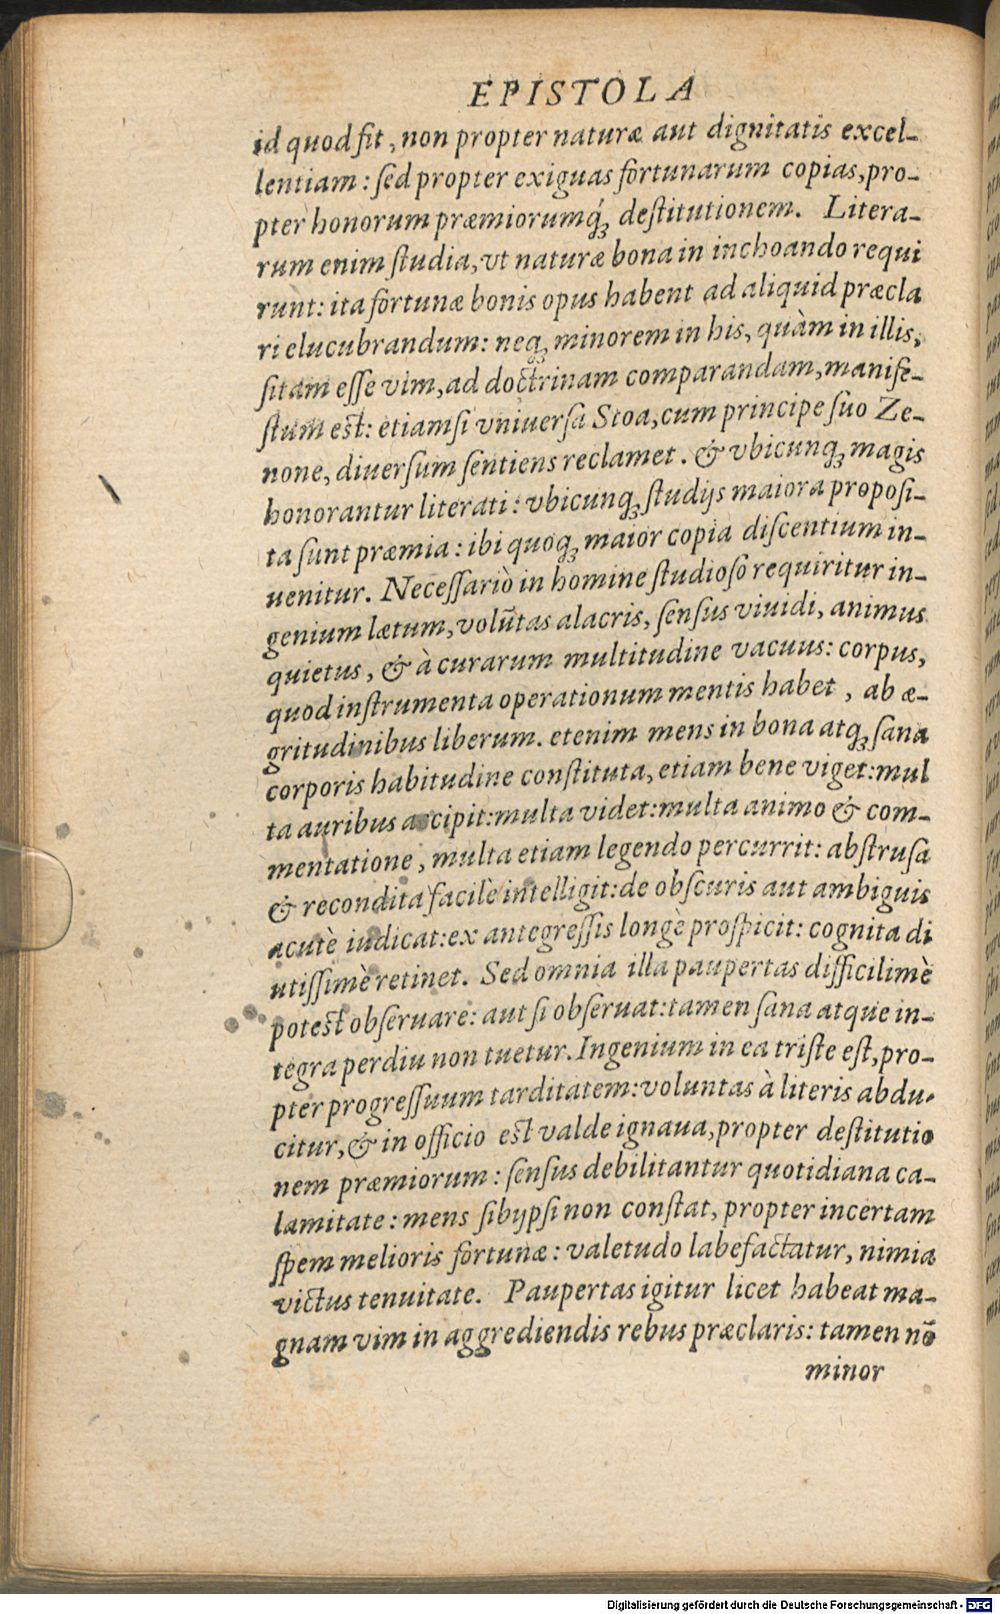 EPISTOLA
id quod fit, non propter naturæ aut dignitatis excel-
lentiam: sed propter exiguas fortunarum copias, pro-
pter honorum præmiorumq́ꝫ destitutionem. Litera-
rum enim studia, vt naturæ bona in inchoando requi
runt: ita fortunæ bonis opus habent ad aliquid præcla
ri elucubrandum: neqꝫ minorem in his, quàm in illis,
sitam esse vim, ad doctrinam comparandam, manife-
stum est: etiamsi vniuersa Stoa, cum principe suo Ze-
none, diuersum sentiens reclamet. & vbicunqꝫ magis
honorantur literati: vbicunqꝫ studijs maiora proposi-
ta sunt præmia: ibi quoqꝫ maior copia discentium in-
uenitur. Necessariò in homine studioso requiritur in-
genium lætum, volūtas alacris, sensus viuidi, animus
quietus, & à curarum multitudine vacuus: corpus,
quod instrumenta operationum mentis habet, ab æ-
gritudinibus liberum. etenim mens in bona atqꝫ sana
corporis habitudine constituta, etiam bene viget: mul
ta auribus accipit: multa videt: multa animo & com-
mentatione, multa etiam legendo percurrit: abstrusa
& recondita facilè intelligit: de obscuris aut ambiguis
acutè iudicat: ex antegressis longè prospicit: cognita di
utissimè retinet. Sed omnia illa paupertas difficilimè
potest obseruare: aut si obseruat: tamen sana atque in-
tegra perdiu non tuetur. Ingenium in ea triste est, pro-
pter progressuum tarditatem: voluntas à literis abdu-
citur, & in officio est valde ignaua, propter destitutio
nem præmiorum: sensus debilitantur quotidiana ca-
lamitate: mens sibijpsi non constat, propter incertam
spem melioris fortunæ: valetudo labefactatur, nimia
victus tenuitate. Paupertas igitur licet habeat ma-
gnam vim in aggrediendis rebus præclaris: tamen nō
minor
Digitalisierung gefördert durch die Deutsche Forschungsgemeinschaft - DFG